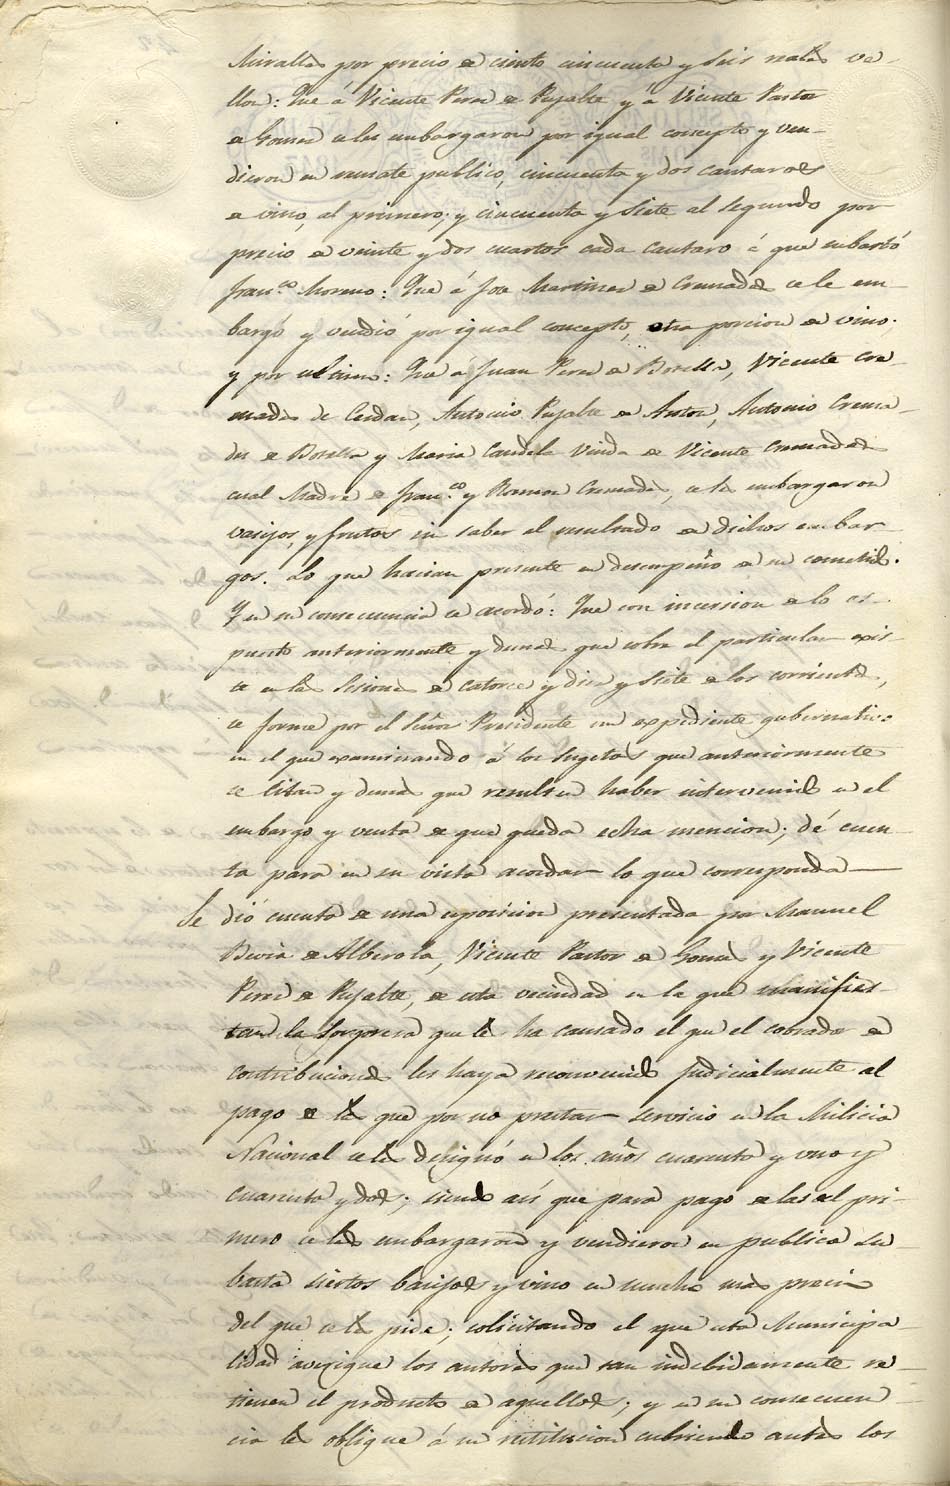 Miralles por precio de ciento cincuenta y seis reales ve-
llon: Que á Vicente Perez de Pujalte y á Vicente Pastor
de Gomez se les embargaron por igual concepto y ven-
dieron en remate publico, cincuenta y dos cantaros
de vino, al primero; y cincuenta y siete al segundo por
precio de veinte y dos cuartos cada cantaro á que
Fran.co Moreno: Que á José Martinez de Cremades se le em-
bargó y vendió por igual concepto, otra porcion de vino:
y por ultimo: Que á Juan Perez de Botella, Vicente Cre-
mades de Cerdan, Antonio Pujalte de Anton, Antonio Crema-
des de Botella y Maria Candela Viuda de Vicente Cremades
cual Madre de Fran.co y Ramon Cremades, se les embargaron
vasijos, y frutos sin saber el resultado de dichos embar
gos. Lo que hacian presente en desempeño de su cometido.
Y en su consecuencia se acordó: Que con incersion de lo es-
puesto anteriormente y demas que sobre el particular exis-
te en las sesiones de catorce y diez y siete de los corrientes,
se forme por el Señor Presidente un expediente gubernativo
en el que examinando á los sugetos que anteriormente
se citan y demas que resulten haber intervenido en el
embargo y venta de que queda echa mencion; dé cuen-
ta para en su vista acordar lo que corresponda —
Se dió cuenta de una esposicion presentada por Manuel
Bevia de Alberola, Vicente Pastor de Gomez y Vicente
Perez de Pujalte, de esta vecindad en la que manifies-
tan la sorpresa que les ha causado el que el cobrador de
contribuciones les haya reconvenido judicialmente al
pago de las que por no prestar servicio en la Milicia
Nacional se les designó en los años cuarenta y uno y
cuarenta y dos; siendo así que para pago de las del pri-
mero se les embargaron y vendieron en publica su-
basta siertos basijos y vino en mucho mas precio
del que se les pide; solicitando el que esta Municipa-
lidad averigue los autores que tan indebidamente re-
tienen el producto de aquellos; y en su consecuen
cia les obligue á su restitucion cubriendo antes los